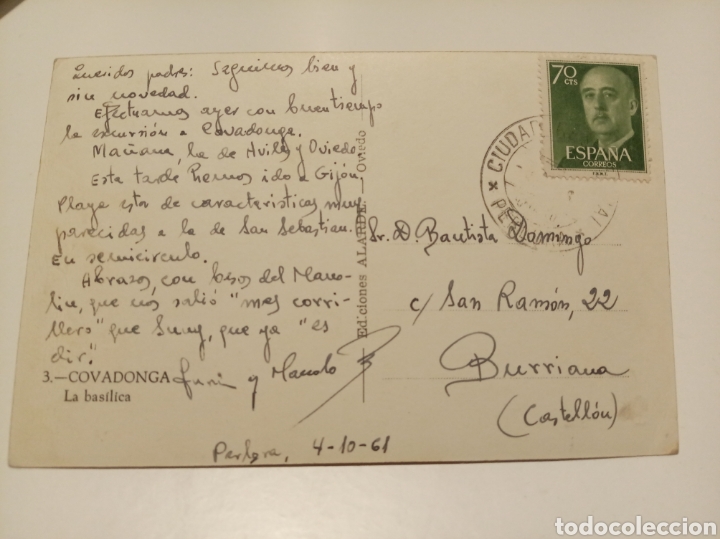 Queridos padres: Seguimos bien y
sin novedad.
Efectuamos ayer con buen tiempo
la excursión a Covadonga.
Mañana, la de Avilés y Oviedo
Esta tarde hemos ido a Gijón
Playa esta de características muy
parecidas a la de San Sebastian.
En semicirculo.
Abrazos, con besos del Mano-
lin, que nos salió "mas corri-
llero" que Suny, que ya "es
dir".
y Manolo
3.—COVADONGA
La basílica
Perlora, 4-10-61
Ediciones ALARDE.—Oviedo
70 CTS
ESPAÑA
CORREOS
F.N.M.T.
CIUDAD
PE
Sr. D. Bautista Domingo
c/ San Ramón, 22
Burriana
(Castellón)
todocoleccion
todocoleccion.net